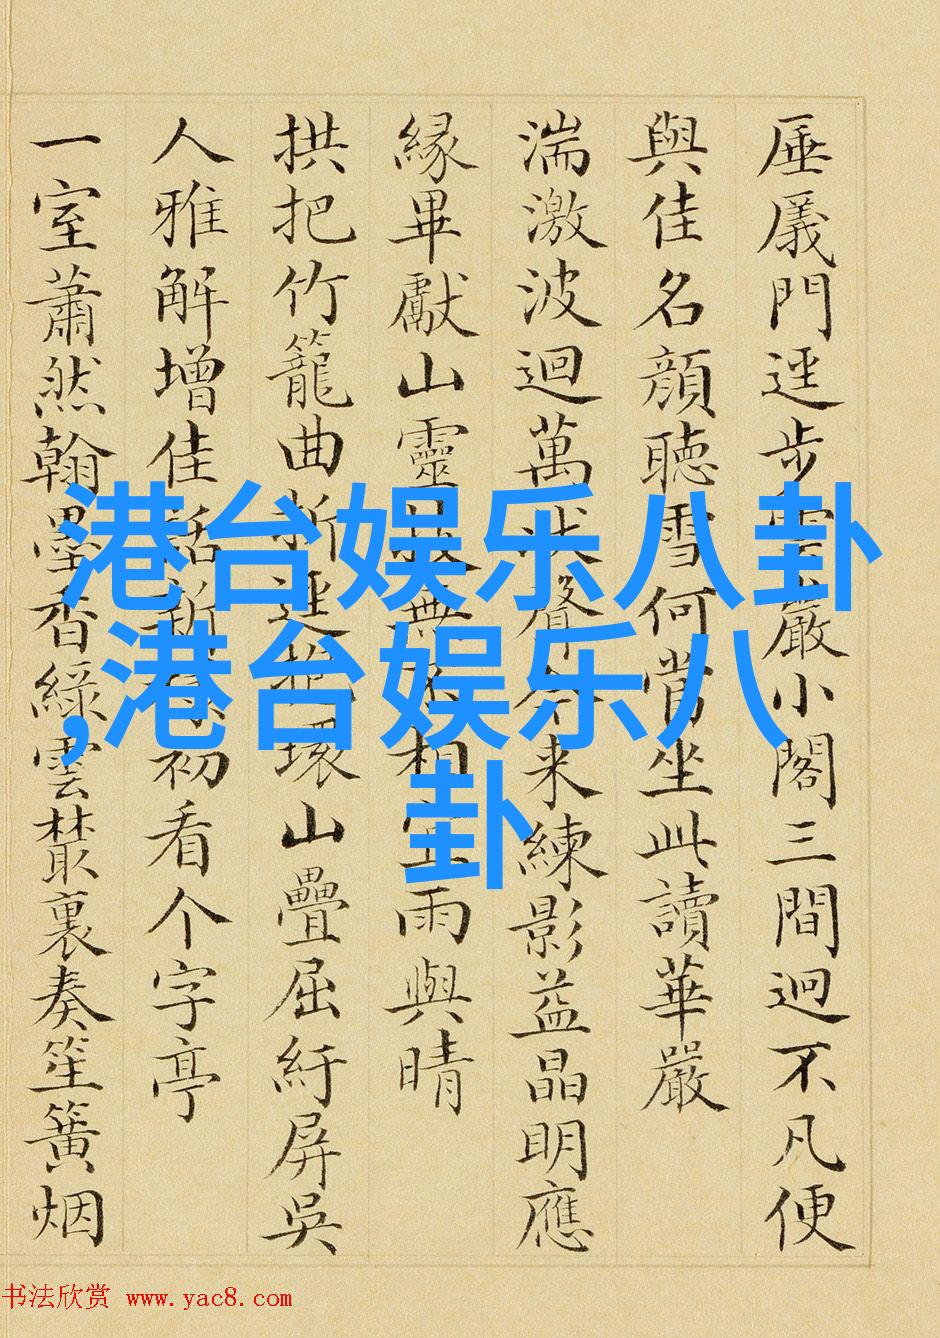 厜㕒門逕步嚴小閣三間迥不凡便
與佳名顏聽雪何當坐此讀華嚴
湍激波迴萬狀聲分來練影益晶明應
緣畢獻山靈技無不相宜雨與晴
拱把竹籠曲折逕抱環山疊屈紆屏吳
人雅解增佳話新樣初看个字亭
一室蕭然翰墨香綠雲叢裏奏笙簧烟
港台娱乐八卦
,港台娱乐八
卦
书法欣赏 www.yac8.com